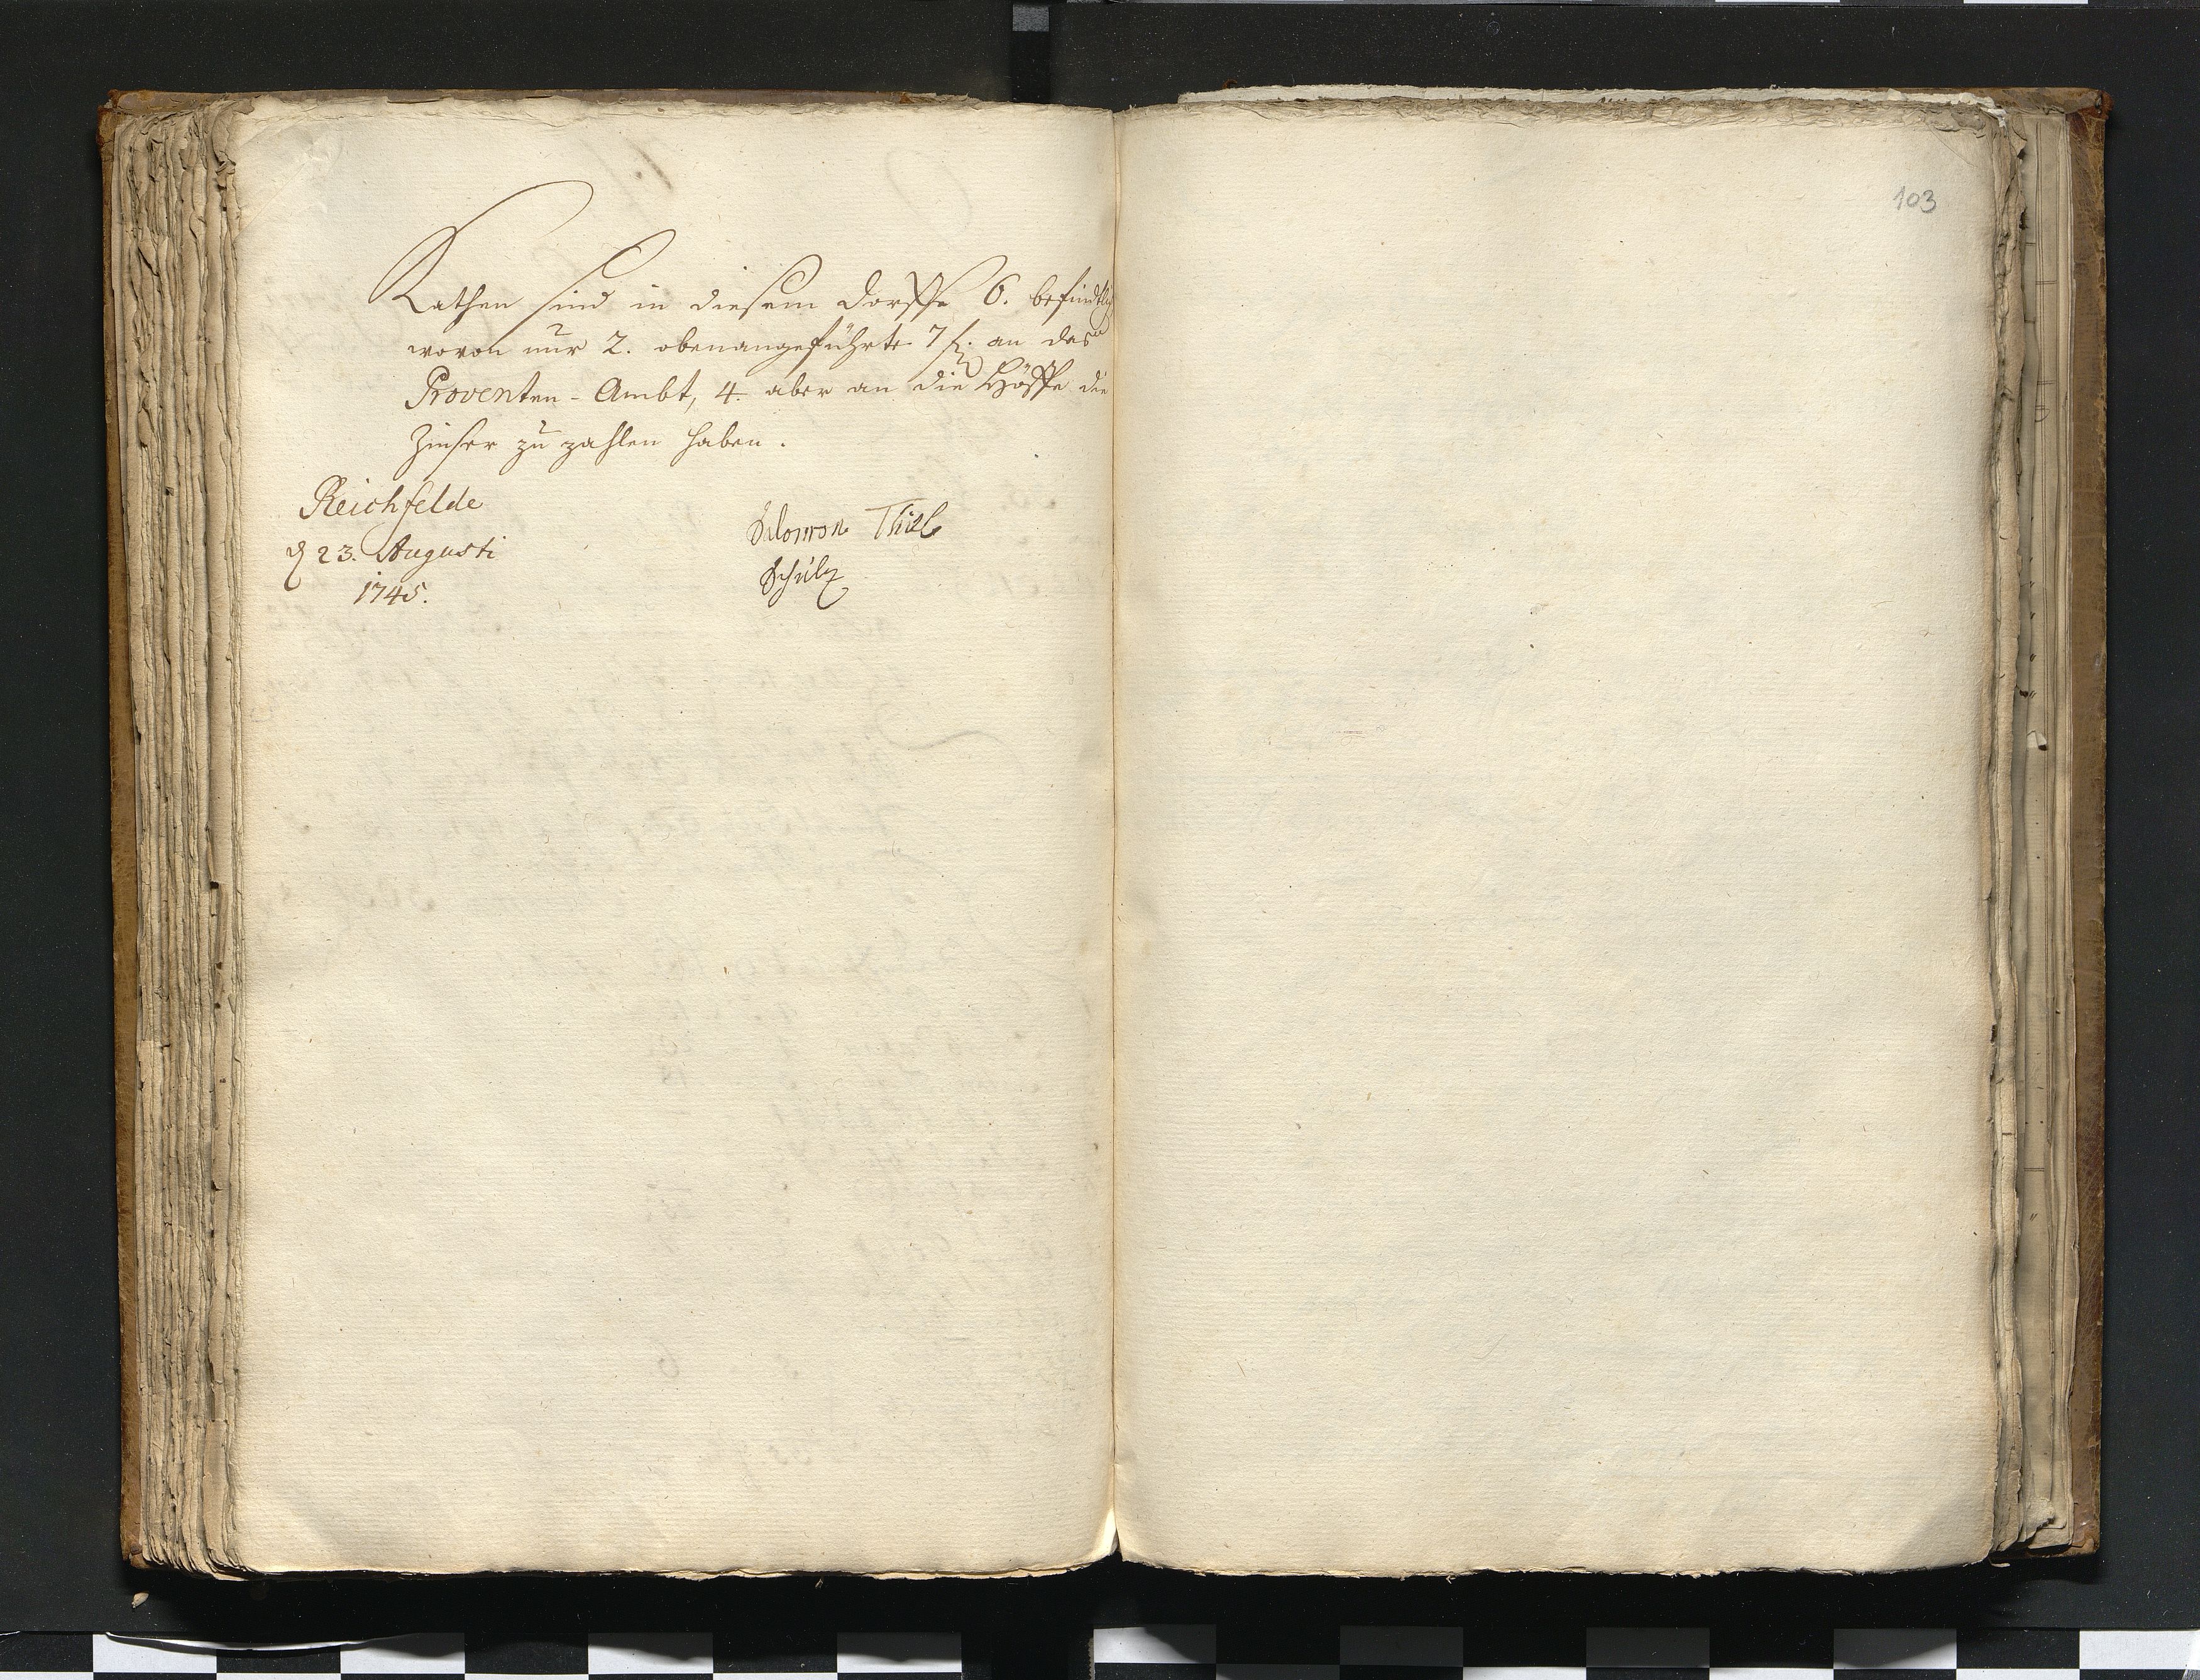 Kathen sind in diesem Dorffe 6. befindtlich
wovon nur 2. obenangeführte 7 f. an das
Proventen-Ambt, 4. aber an die Höffe die
Zinser zu zahlen haben.
Reichfelde
d 23. Augusti
1745.
Salomon Thiel
Schulz
103